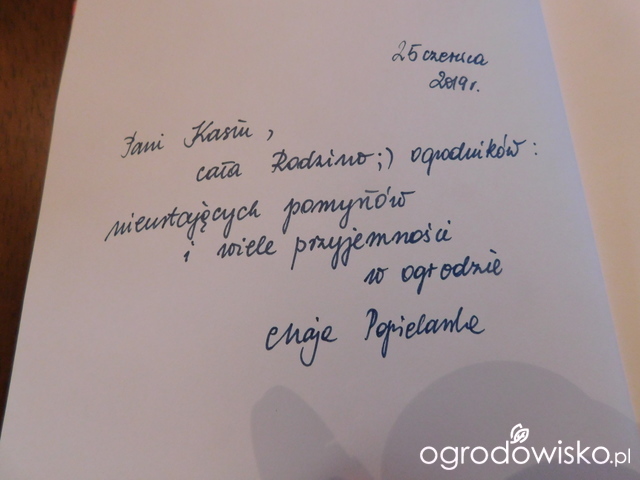 25 czerwca
2019r.
Pani Kasiu,
cała Rodzino ;) ogrodników:
nieustających pomysłów
i wiele przyjemności
w ogrodzie
Maja Popielarska
ogrodowisko.pl